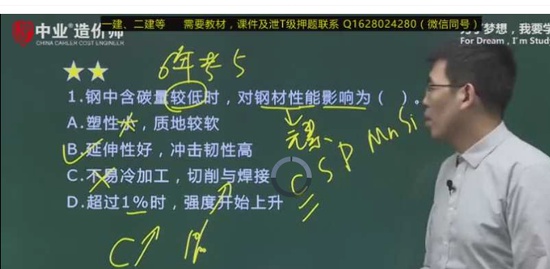 一建、二建等 需要教材，课件及泄T级押题联系 Q1628024280（微信同号）
中业®造价师
CHINA CAHLER COST ENGINEER
为了梦想，我要学
For Dream, I'm Study
★★
6年考5
1.钢中含碳量较低时，对钢材性能影响为（ ）。
A.塑性小，质地较软
B.延伸性好，冲击韧性高
C.不易冷加工，切削与焊接
D.超过1%时，强度开始上升
元素
C S P Mn Si
C↑ 1%